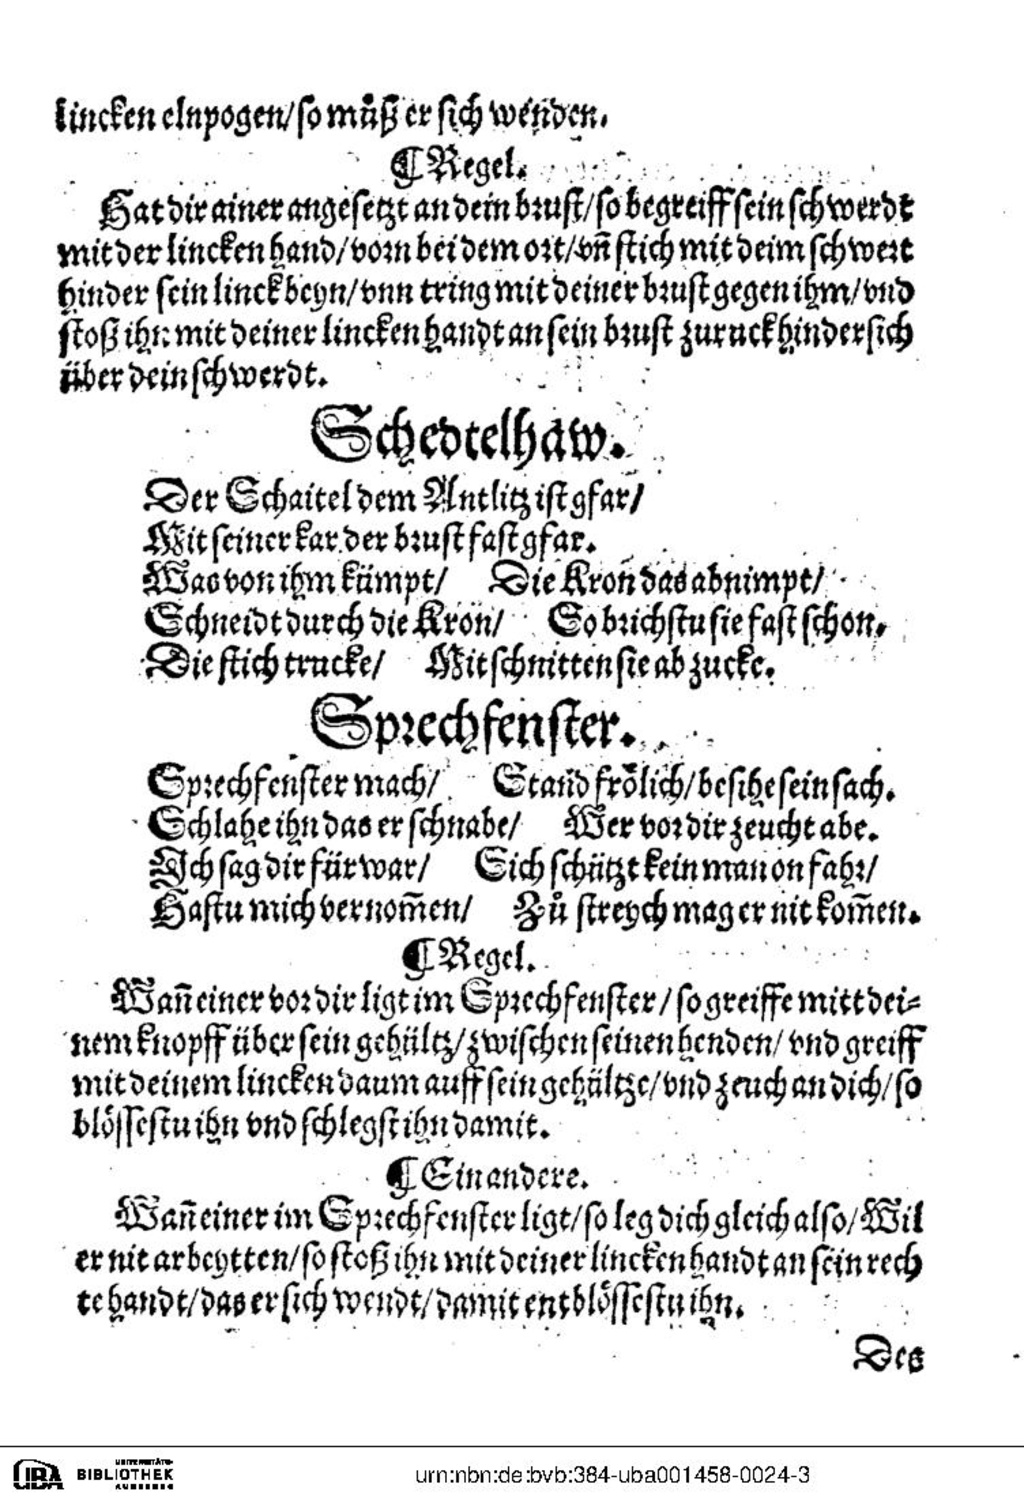 lincken elnpogen/so můß er sich wenden.
¶ Regel.
Hat dir ainer angesetzt an dein brust/so begreiff sein schwerdt
mit der lincken hand/vorn bei dem ort/vn̄ stich mit deim schwert
hinder sein linck beyn/vnn tring mit deiner brust gegen ihm/vnd
stoß ihn mit deiner lincken handt an sein brust zuruck hindersich
über dein schwerdt.
Schedtelhaw.
Der Schaitel dem Antlitz ist gfar/
Mit seiner kar der brust fast gfar.
Was von ihm kümpt/ Die Kron das abnimpt/
Schneidt durch die Kron/ So brichstu sie fast schon.
Die stich trucke/ Mit schnitten sie ab zucke.
Sprechfenster.
Sprechfenster mach/ Stand frölich/besihe sein sach.
Schlahe ihn das er schnabe/ Wer vor dir zeucht abe.
Ich sag dir für war/ Sich schützt kein man on fahr/
Hastu mich vernom̄en/ Zů streych mag er nit kom̄en.
¶ Regel.
Wan̄ einer vor dir ligt im Sprechfenster/so greiffe mitt dei-
nem knopff über sein gehültz/zwischen seinen henden/vnd greiff
mit deinem lincken daum auff sein gehültze/vnd zeuch an dich/so
blössestu ihn vnd schlegst ihn damit.
¶ Ein andere.
Wan̄ einer im Sprechfenster ligt/so leg dich gleich also/Wil
er nit arbeytten/so stoß ihn mit deiner lincken handt an sein rech
te handt/das er sich wendt/damit entblössestu ihn.
Des
UBA UNIVERSITÄTS-
BIBLIOTHEK
AUGSBURG
urn:nbn:de:bvb:384-uba001458-0024-3